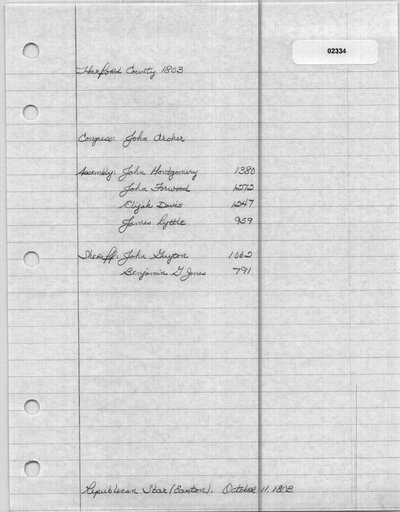 02334
Harford County 1803
Congress: John Archer
Assembly: John Montgomery 1380
John Forwood 1272
Elijah Davis 1247
James Lyttle 959
Sheriff: John Guyton 1062
Benjamin G. Jones 791
Republican Star (Easton). October 11, 1803